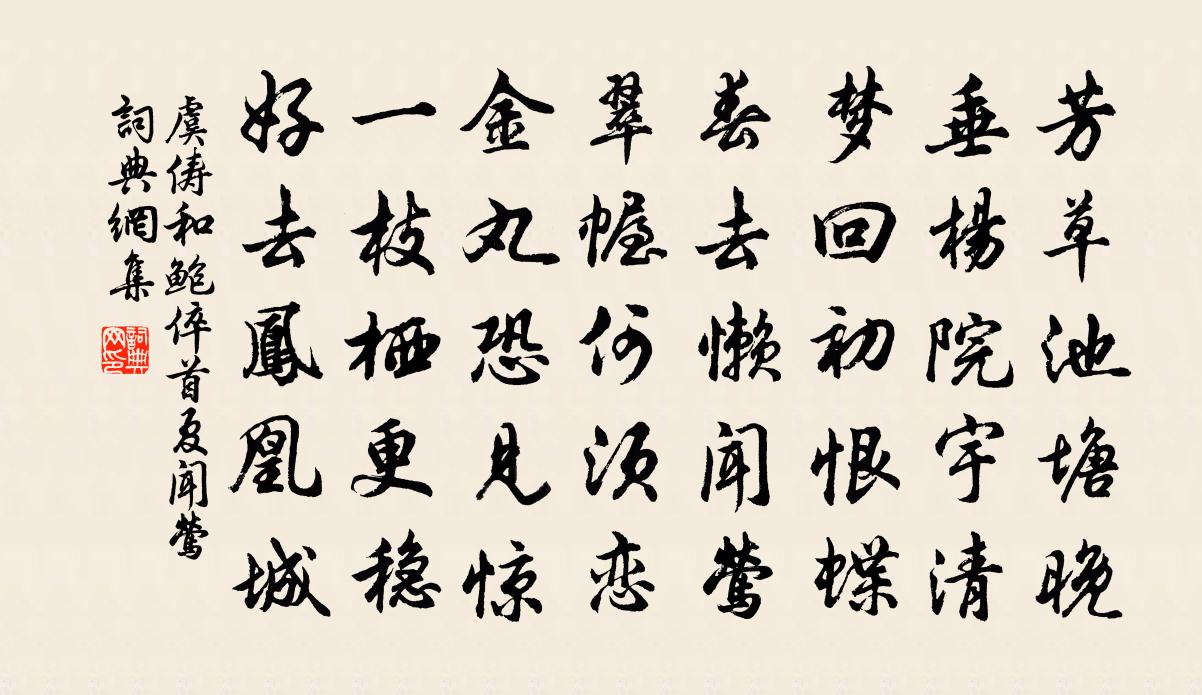 芳草池塘晚
垂楊院宇清
梦回初恨蝶
春去懒闻莺
翠幄何须恋
金丸恐见惊
一枝栖更稳
好去鳳凰城
虞俦和鲍倅首夏闻莺
詞典網集
詞典
网印